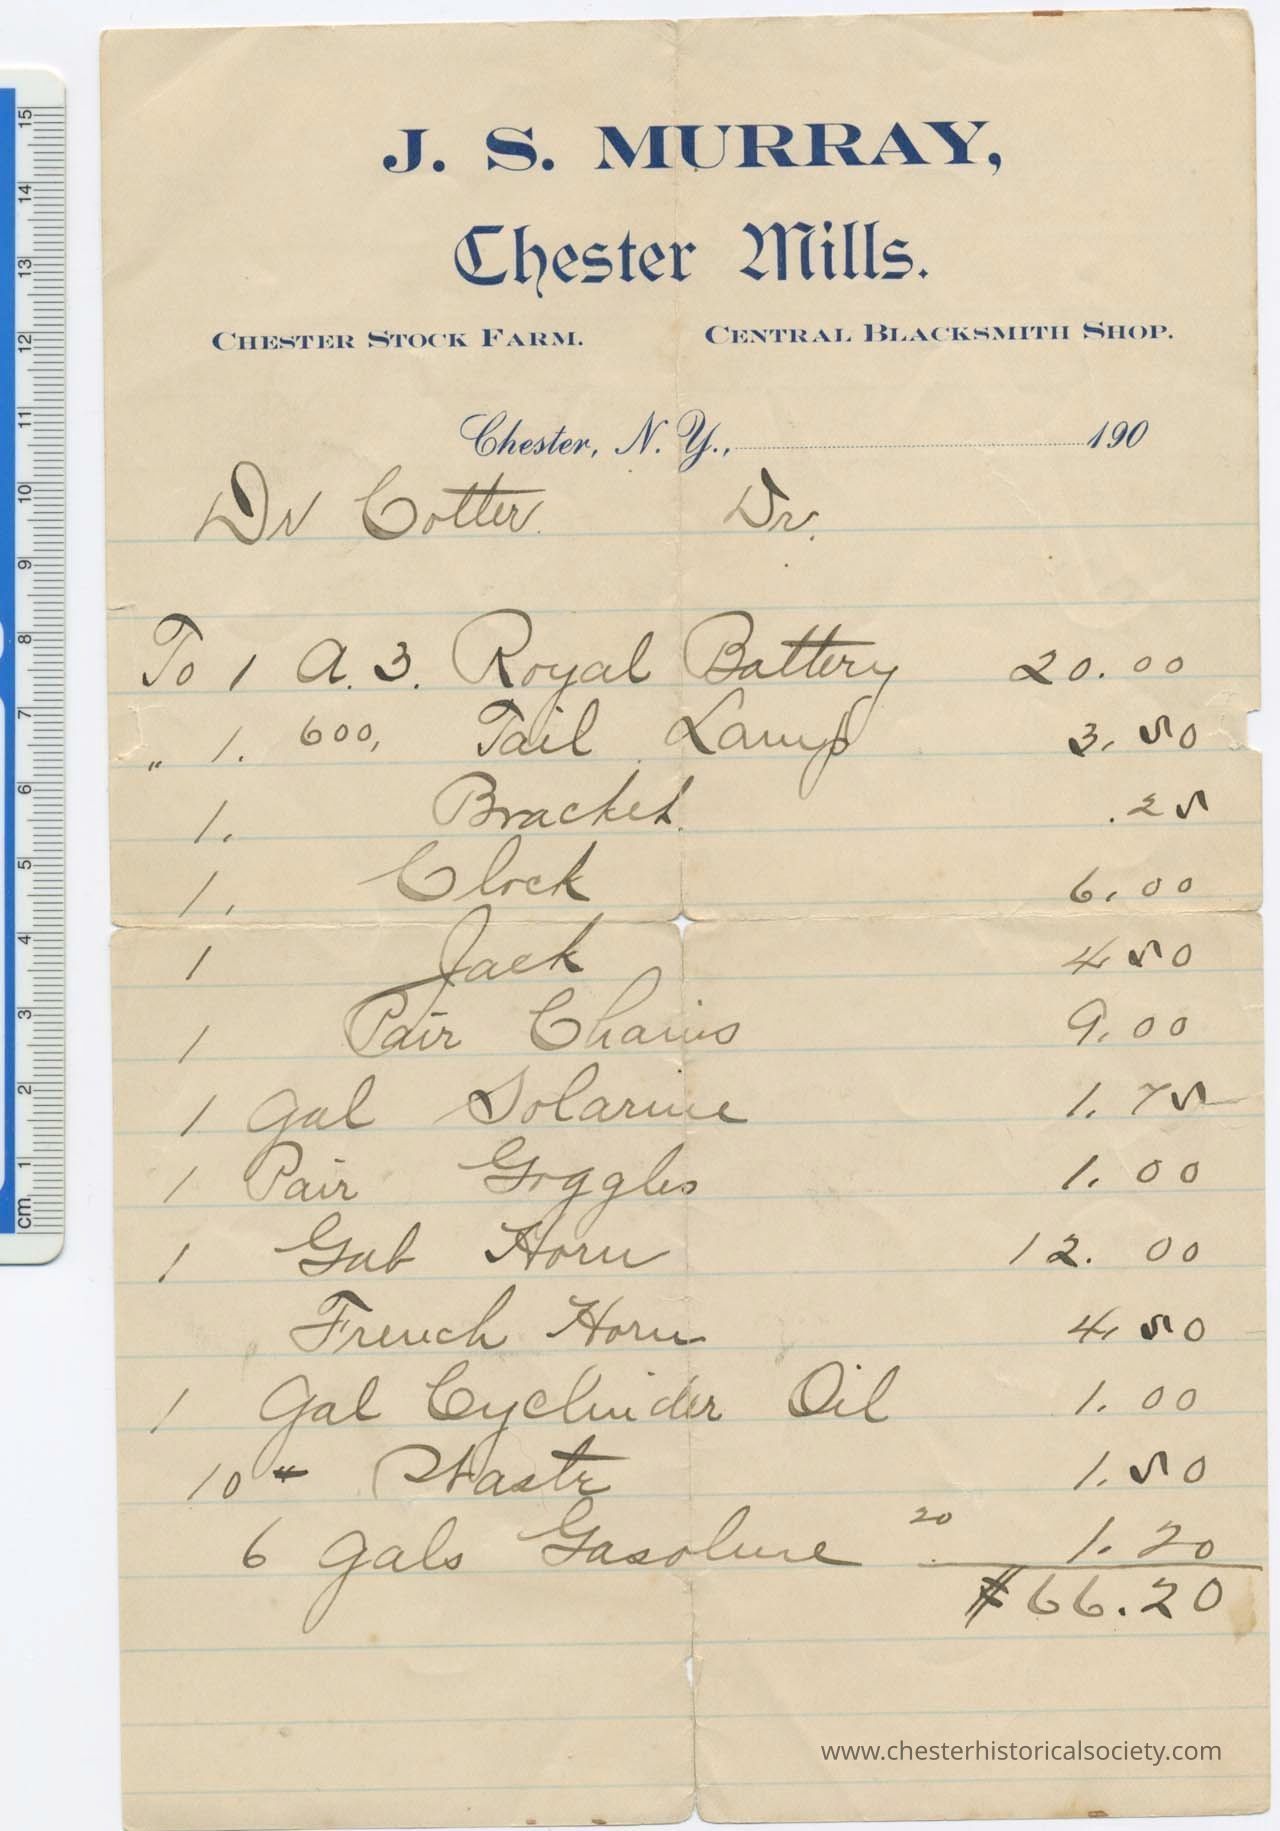 J. S. MURRAY,
Chester Mills.
CHESTER STOCK FARM. CENTRAL BLACKSMITH SHOP.
Chester, N. Y., 190
Dr Cotter. Dr.
To 1 A. 3. Royal Battery 20.00
" 1. 600, Tail Lamp 3.50
1. Bracket. .25
1. Clock 6.00
1 Jack 4 50
1 Pair Chains 9.00
1 gal Solarine 1.75
1 Pair Goggles 1.00
1 Gab Horn 12.00
French Horn 4.50
1 gal Cyclinder Oil 1.00
10 " 1.50
6 gals Gasoline 20 1.20
$66.20
www.chesterhistoricalsociety.com
15
14
13
12
11
10
9
8
7
6
5
4
3
2
1
cm